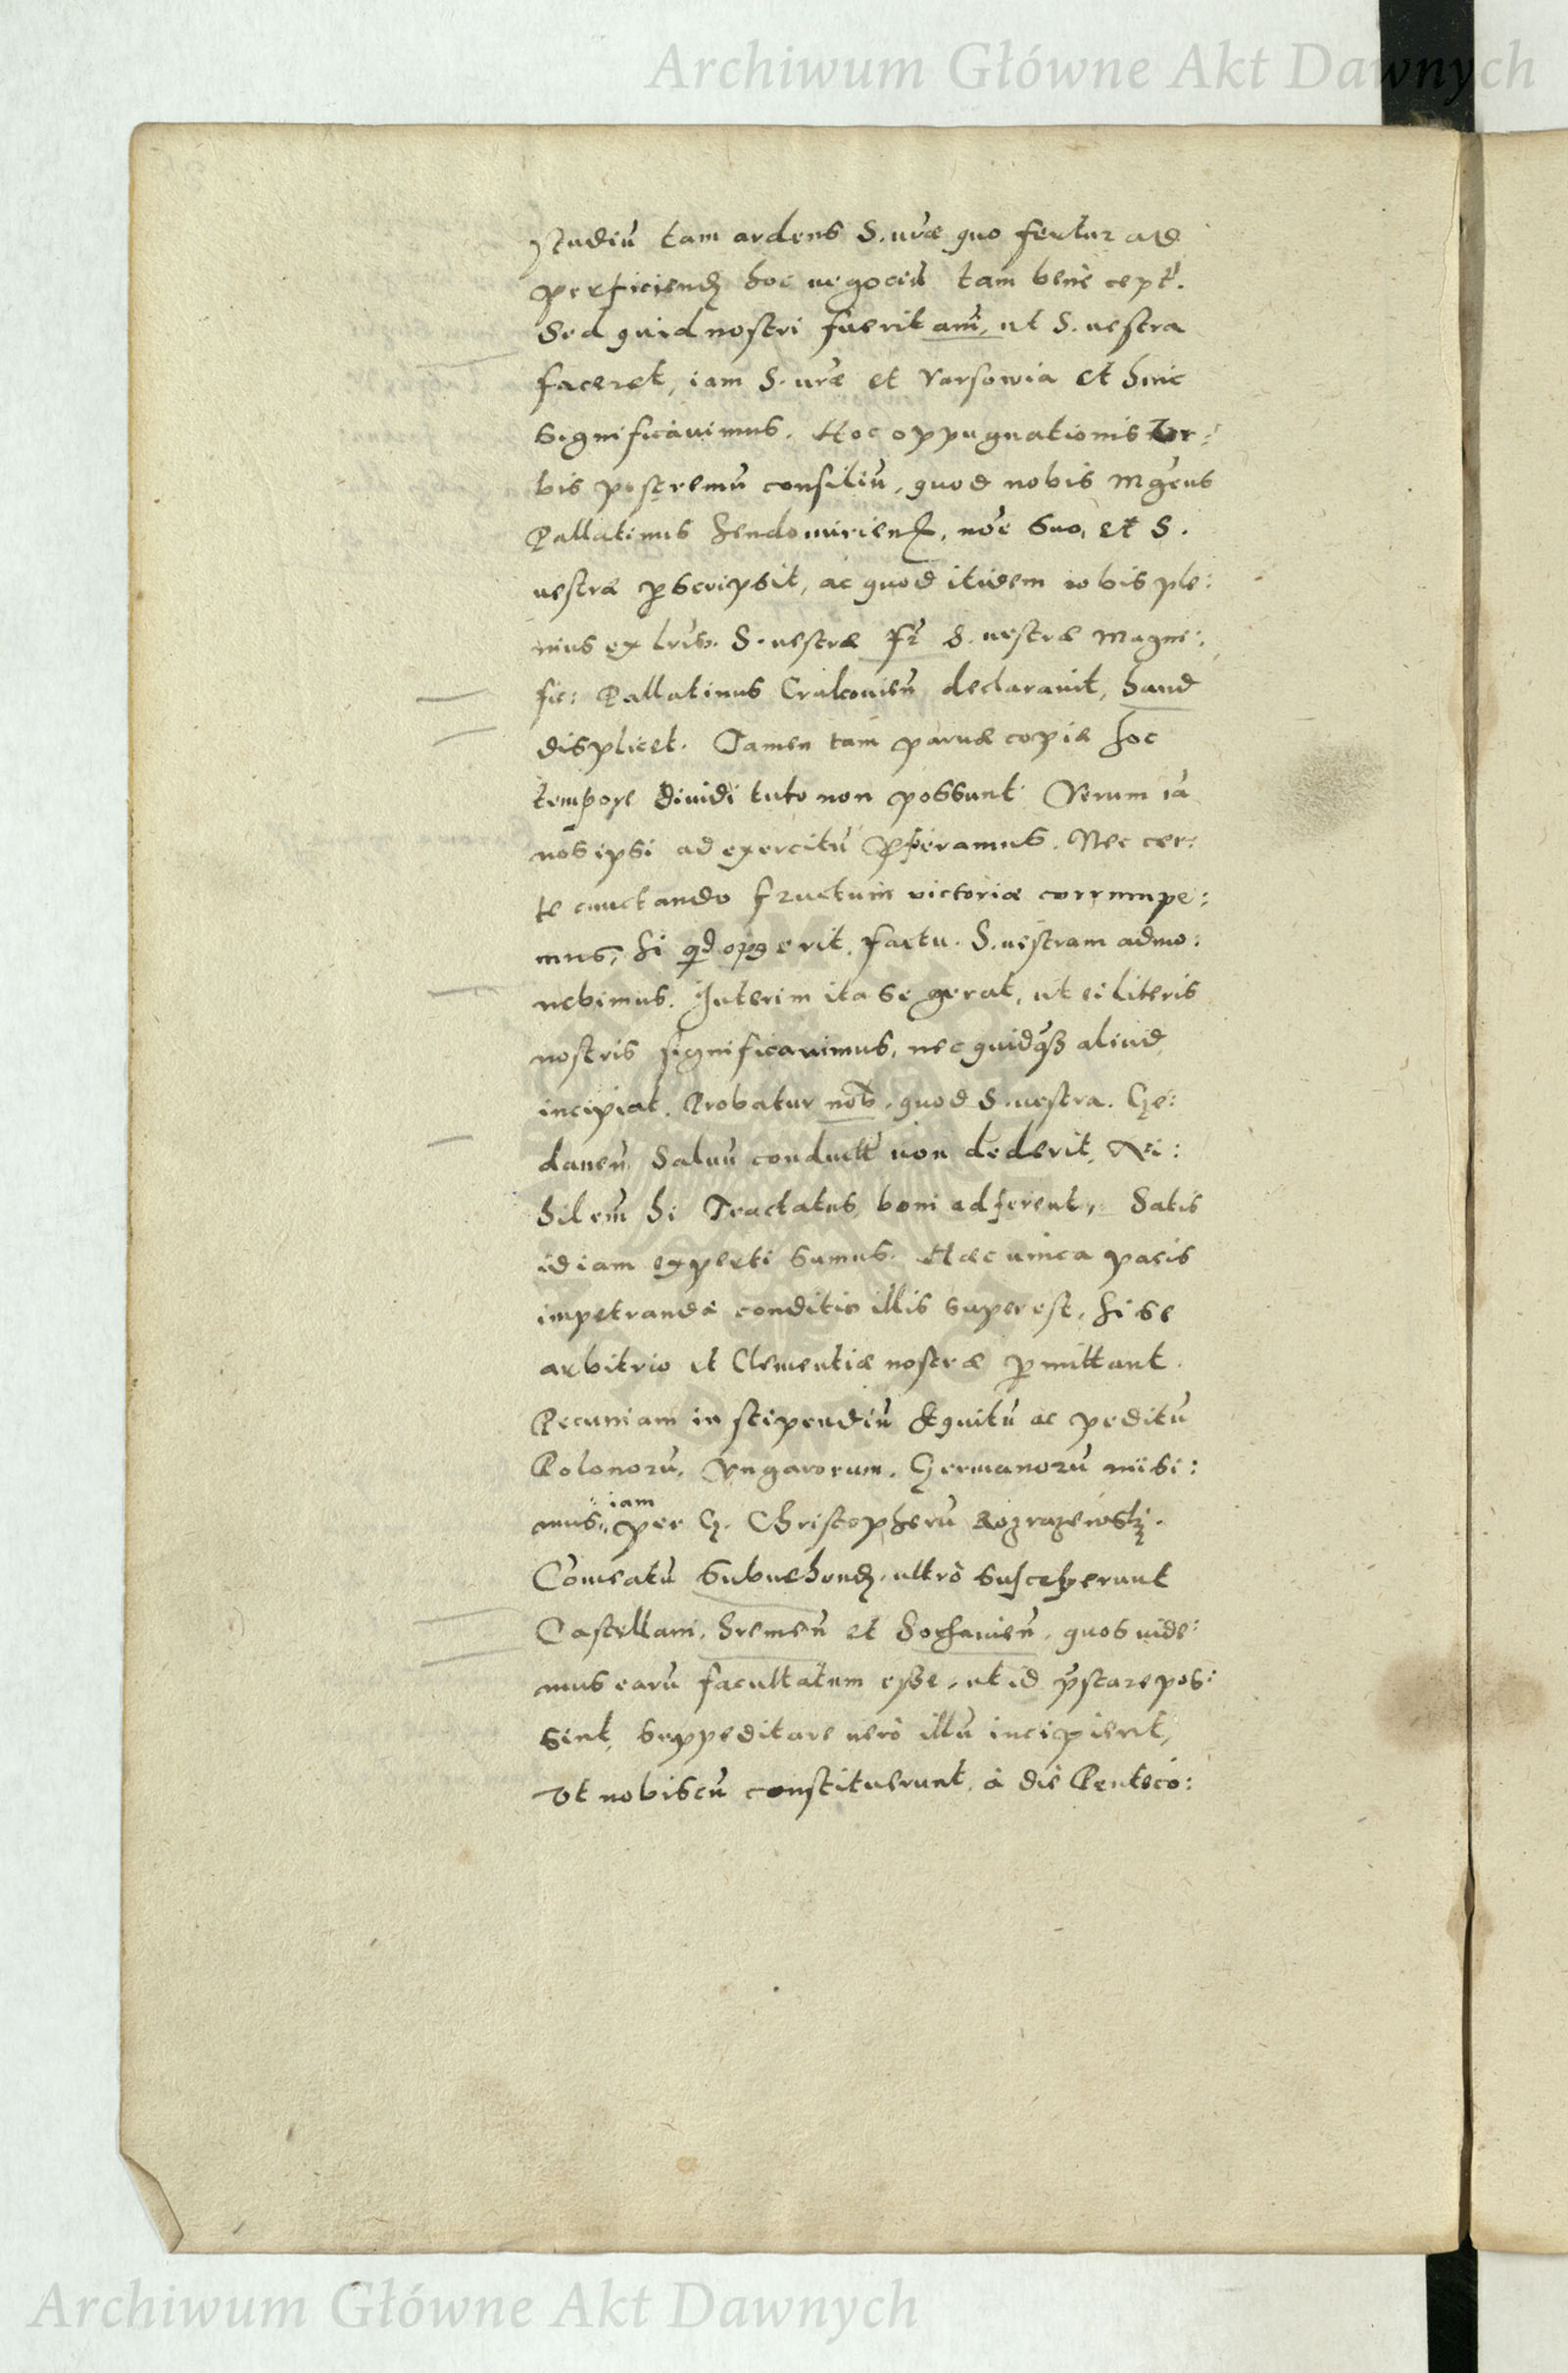 Archiwum Główne Akt Dawnych
studiũ tam ardens S. uræ quo fertur ad
perficiend hoc negociũ tam bene cept̃.
Sed quid nostri fuerit anĩ, ut S. uestra
faceret, iam S. uræ et Varsowia et hinc
significauimus. Hoc oppugnationis Vr:
bis postremũ consiliũ, quod nobis Mgcus
Pallatinus Sendomirien, noẽ suo, et S.
uestræ pscripsit, ac quod itidem nobis ple:
nius ex lris S. uestræ fr̃ S. uestræ Magni:
fic: Pallatinus Cracouien̄ declarauit, haud
displicet. Tamen tam paruæ copiæ hoc
tempore diuidi tuto non possunt. Verum iã
nos ipsi ad exercitũ pperamus. Nec cer:
te cunctando fructum victoriæ corrumpe:
mus, si qd op9 erit factu. S. uestram admo:
nebimus. Interim ita se gerat, ut ei literis
nostris significauimus, nec quidq̃ aliud
incipiat. Probatur nob, quod S. uestra. Ge:
danen̄ Saluũ conductũ non dederit, Ni:
hil em̃ hi Tractatus boni adferent, Satis
id iam experti sumus. Hæc unica pacis
impetrandæ conditio illis superest, si se
arbitrio et Clementiæ nostræ pmittant.
Pecuniam in stipendiũ Equitũ ac peditũ
Polonorũ, Vngarorum, Germanorũ misi:
mus, iam per G. Christopherũ Rozrazewski.
Comeatũ subuehend, ultrò susceperunt
Castellani, Sremen̄ et Sochauien̄, quos uide:
mus earũ facultatum esse, ut id p̃stare pos:
sint, suppeditare uerò illũ incipient,
Vt nobiscũ constituerunt, à die Penteco:
Archiwum Główne Akt Dawnych